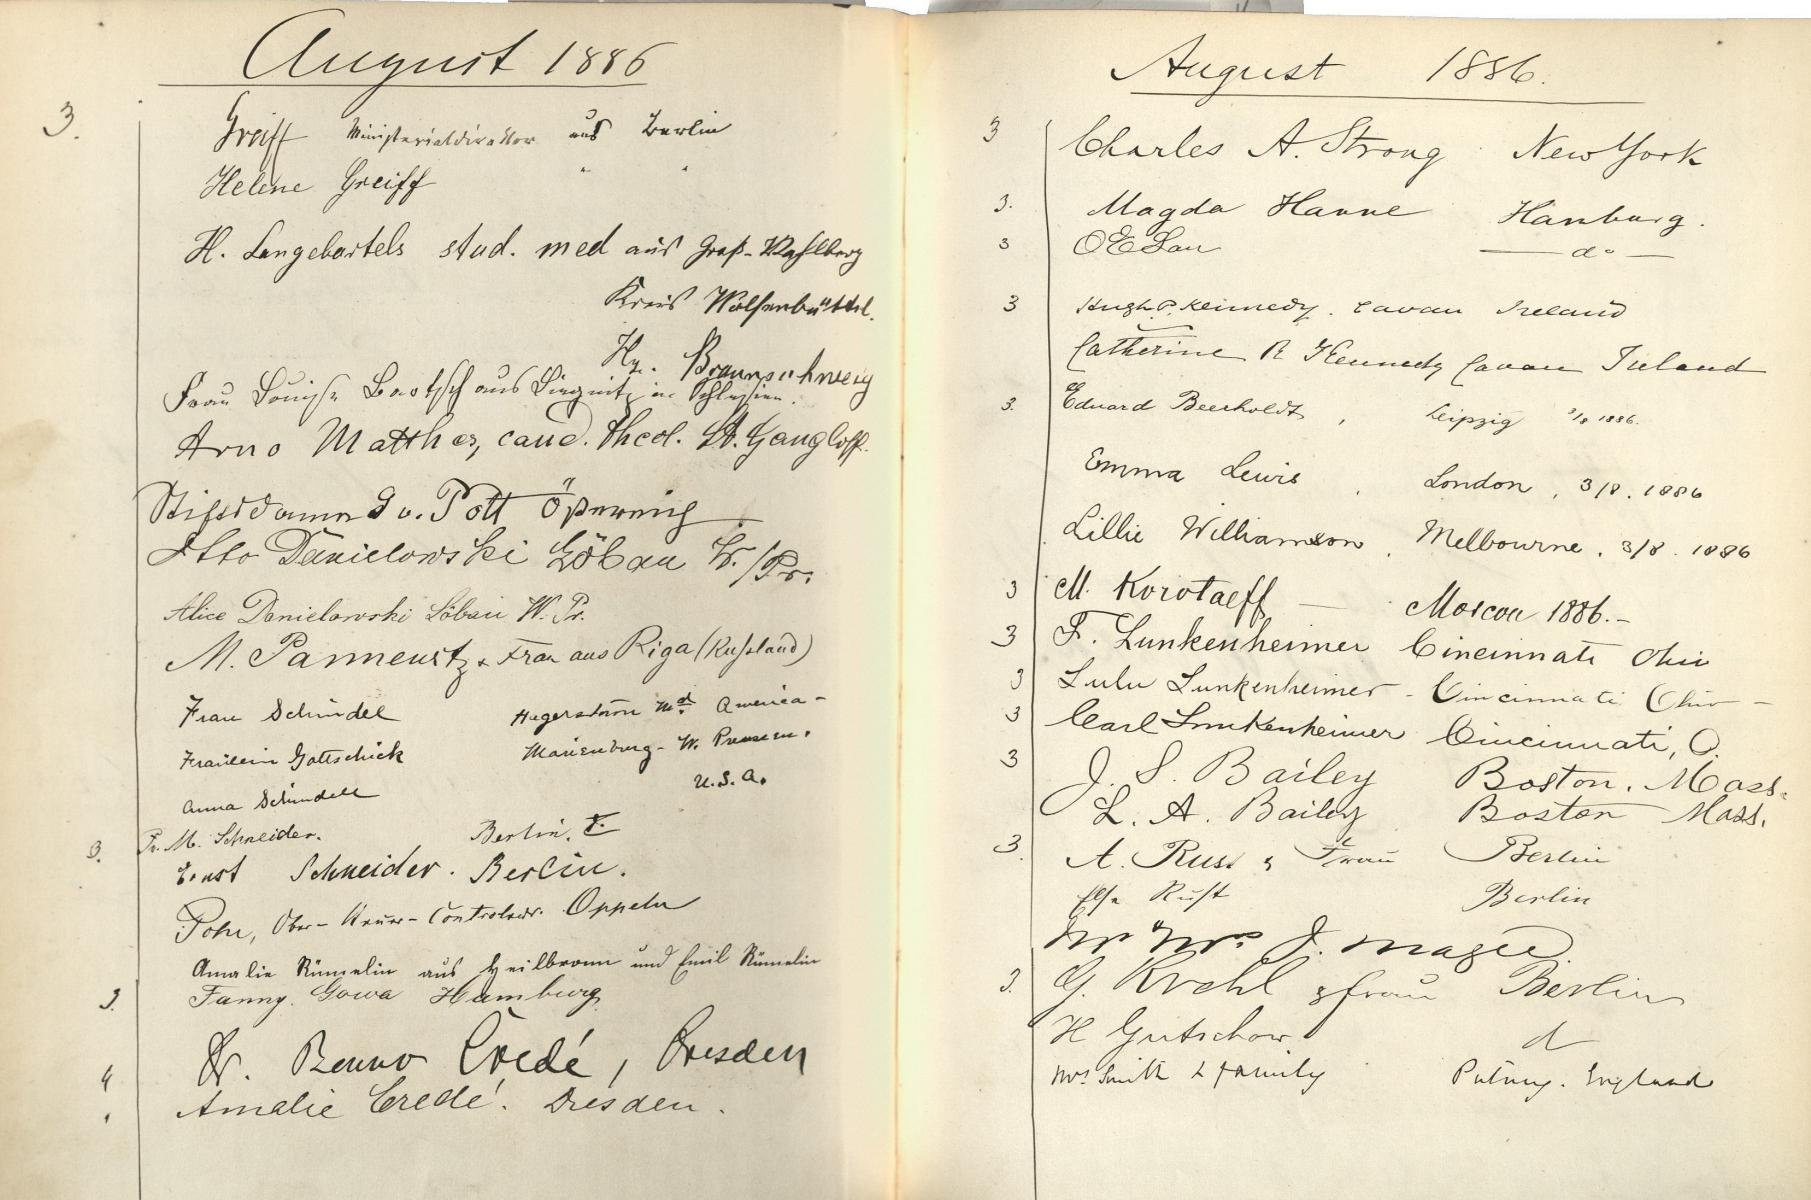 August 1886
3. Greiff Ministerialdirektor aus Berlin
Helene Greiff " "
H. Langebartels stud. med aus Groß-Vahlberg
Kreis Wolfenbüttel.
Hz. Braunschweig
Frau Louise Bartsch aus Liegnitz in Schlesien.
Arno Matthes, cand. theol. St. Gangloff.
Stiftsdame v. Pott
Otto Danielowski Löbau W./Pr.
Alice Danielowski Löbau W. Pr.
M. Pannewitz & Frau aus Riga (Russland)
Frau Schindel Hagerstown Md. America -
Fraülein Gottschick Marienburg - W. Preussen.
Anna Schindell U.S.A.
3. Fr. M. Schneider. Berlin.
Ernst Schneider. Berlin.
Pohr, Ober-Steuer-Controleur. Oppeln
Amalie Rümelin aus Heilbronn und Emil Rümelin
3. Fanny Gowa Hamburg
4 Dr. Benno Credé, Dresden
Amalie Credé. Dresden.
August 1886.
3 Charles A. Strong New York
3. Magda Hanne Hamburg.
3 O E Lau — do —
3 Hugh P. Kennedy. Cavan Ireland
Catherine R Kennedy Cavan Ireland
3. Eduard Beerholdt, Leipzig 3/8 1886.
Emma Lewis, London, 3/8. 1886
Lillie Williamson, Melbourne, 3/8. 1886
3 M. Korotaeff — Moscou 1886.-
3 F. Lunkenheimer Cincinnati Ohio
3 Lulu Lunkenheimer - Cincinnati Ohio -
3 Carl Lunkenheimer Cincinnati, O.
3 J. S. Bailey Boston. Mass.
L. A. Bailey Boston Mass.
3. A. Rust & Frau Berlin
Else Rust Berlin
Mr Mrs J. Magee.
3. G. Krehl & frau Berlin
H Gutschow d
Mrs Smith & family Putney. England